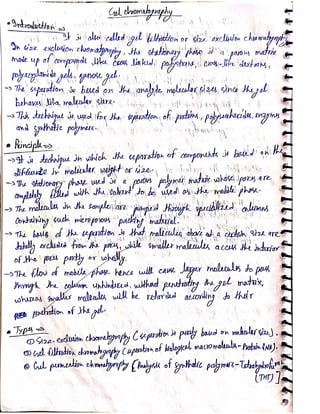 Gel chromatography
• Introduction →
It is also called gel filtration or size exclusion chromatography
In size exclusion chromatography, the stationary phase is a porous matrix
made up of compounds like cross linked polystyrene, cross-like dextrans,
polyacrylamide gels, agarose gel.
→ The separation is based on the analyte molecular sizes since the gel
behaves like molecular sieve.
→ This technique is used for the separation of proteins, polysaccharides, enzymes
and synthetic polymers.
• Principle →
→ It is technique in which the separation of components is based on the
difference in molecular weight or size.
→ The stationary phase used is a porous polymer matrix whose pores are
completely filled with the solvent to be used as the mobile phase.
→ The molecules in the sample are pumped through specialized columns
containing such microporous packing material.
→ The basis of the separation is that molecules above a certain size are
totally excluded from the pores, while smaller molecules access the interior
of the pores partly or wholly.
→ The flow of mobile phase hence will cause larger molecules to pass
through the column unhindered, without penetrating the gel matrix,
whereas smaller molecules will be retarded according to their
penetration of the gel.
• Types →
① Size-exclusion chromatography (separation is purely based on molecular size).
② Gel filtration chromatography (separation of biological macromolecule - Protein
③ Gel permeation chromatography [Analysis of synthetic polymers -